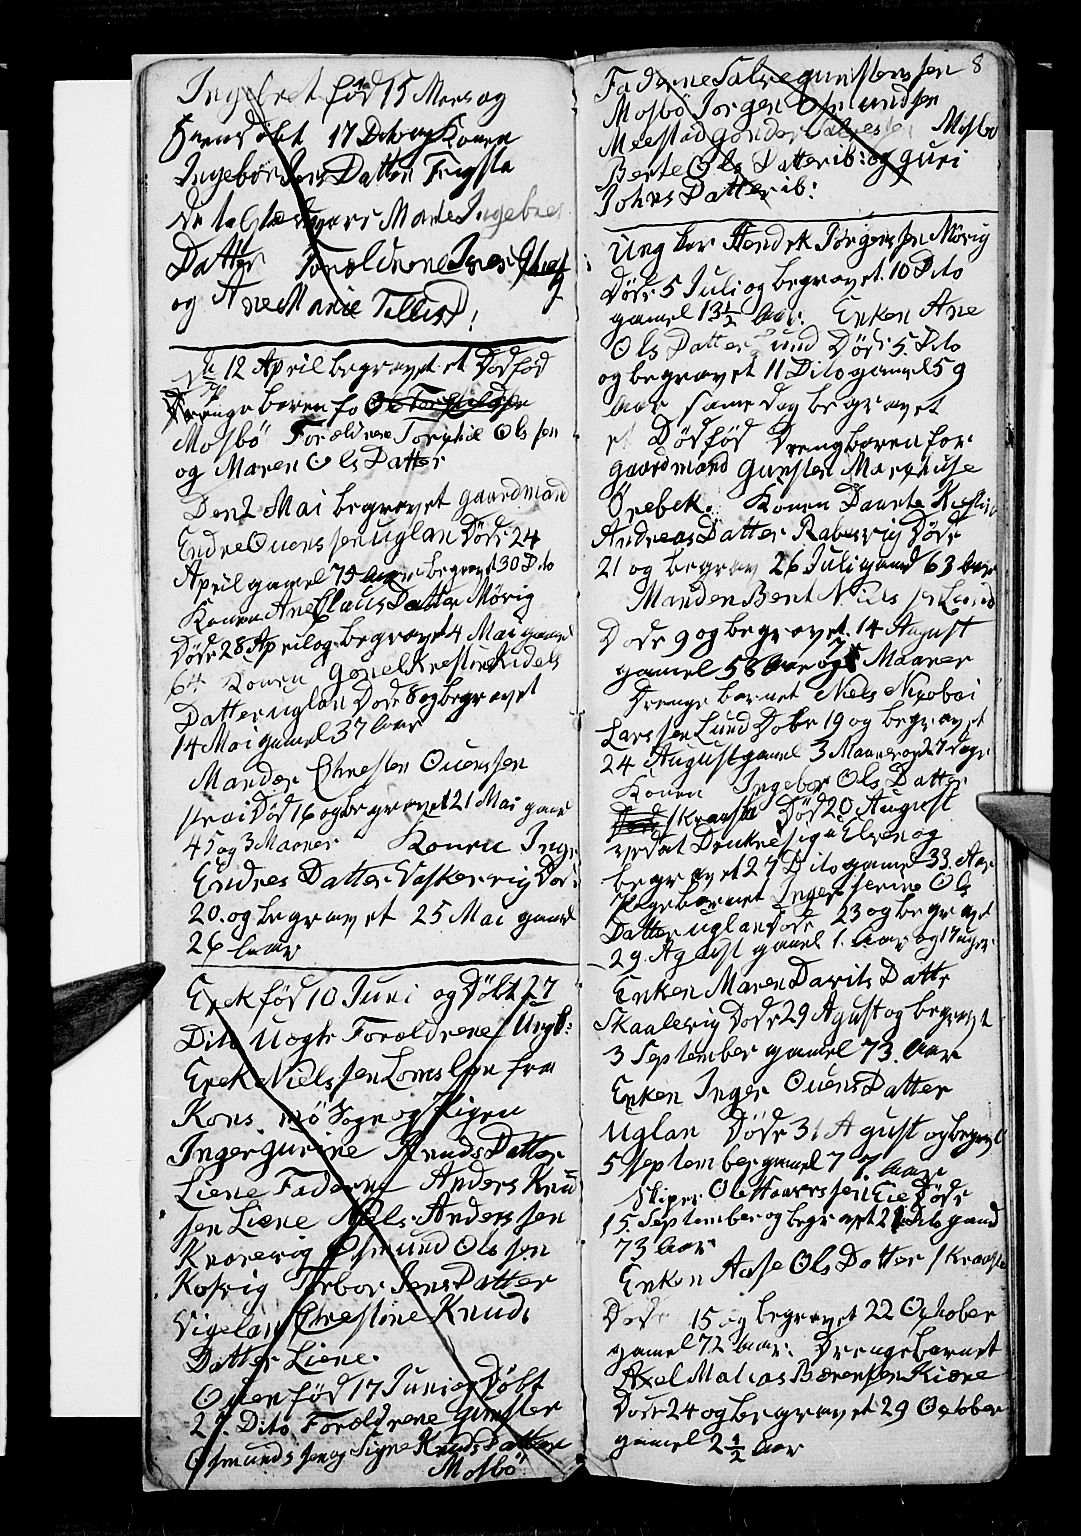 Ingebret fød 15 Mersog
Hiemdøbt 17 Dito og Konen
Ingebor Jens Datter Trysta
Marie Ingebres
Datter Forældrene Jens
og Ane Marie Tellisd:
12 April begravet et Dødfød
Drenge baren fo Ole Torkildsen
Mosbö Forældrene Torkild Olssen
og Maren Ols Datter
Den 2 Mai begravet gaardmand
Endre Ouenssen uglan Døde 24
April gamel 75 Aar begravet 30 Dito
Konen Ane Claus Datter Mörig
Døde 28 April og begravet 4 Mai gamel
64 Konen Gonel Krestense
Datter uglan Døde 8 og begravet
14 Mai gamel 37 Aar
Manden Chresten Ouenssen
Strai Død 16 og begravet 21 Mai gam
45 og 3 Maaner Konen Inge
Endres Datter Vaskerrig Døde
20. og begravet 25 Mai gamel
26 Aar
Erek fød 10 Juni og Døbt 27
Dito Uegte Forældrene Ungk:
Erek Nielssen Loms fra
Kons mö Sogn og Pigen
Ingergurine Knuds Datter
Liene Faderne Anders Knu
sen Liene Niels Anderssen
Knarevig Osmund Olssen
Kosvig Torbor Jens Datter
Vigeland Chrestine Knuds
Datter Liene.
Ouen fød 17 Juni og Døbt
27. Dito Forældrene Gunster
Osmundssen og Signe Knuds Datter
Mosbö
8
Faderne Salve gunstenssen
Mosbö Jorgen Osmundsen
Meestad Gonder Salvesen Mosbö
Berte Ols Datter ib: og guri
Johns Datter ib:
Ung kar Hendrk Jörgenssen Mörig
Døde 5 Juli og begravet 10 Dito
gamel 13½ Aar. Enken Ane
Ols Datter Lund Døde 5. Dito
og begravet 11 Dito gamel 59
Aar same Dag begravet
et Dödföd Drengbaren for
gaardmand Gunsten Marcusse
Örebek. Konen Daarte Kirstin
Andreas Datter Rabersvig Døde
21 og begrav 26 Juli gamel 63 Aar
Manden Bent Nielssen Lund
Døde 9 og begravet 14 August
gamel 58 Aar og 7 Maaner
Drenge barnet Niels Nicolai
Larssen Lund Døde 19 og begravet
24 August gamel 3 Maaner og 27 Dage
Konen Ingebor Ols Datter
Straaste Død 20 August
ved at Drukne sig i Elven og
begravet 27 Dito gamel 33. Aar
Pige barnet Inger serine Ols
Datter uglan Døde 23 og begravet
29. Agust gamel 1. Aar og 17 uger
Enken Maren Davits Datter
Skaalevig Døde 29 Agust og begravet
3 September gamel 73. Aar
Enken Inger Ouens Datter
Uglan Døde 31 Agust og begravet
5 September gamel 77 Aar
Skiper Ole Haaverssen Eie Døde
15. September og begravet 21 Dito gamel
73 Aar
Enken Aase Ols Datter Straaste
Døde 15 og begravet 22 October
gamel 72 Aar: Drengebarnet
Axel Matias Bærentsen Kiære
Døde 24 og begravet 29 October
gamel 2½ Aar